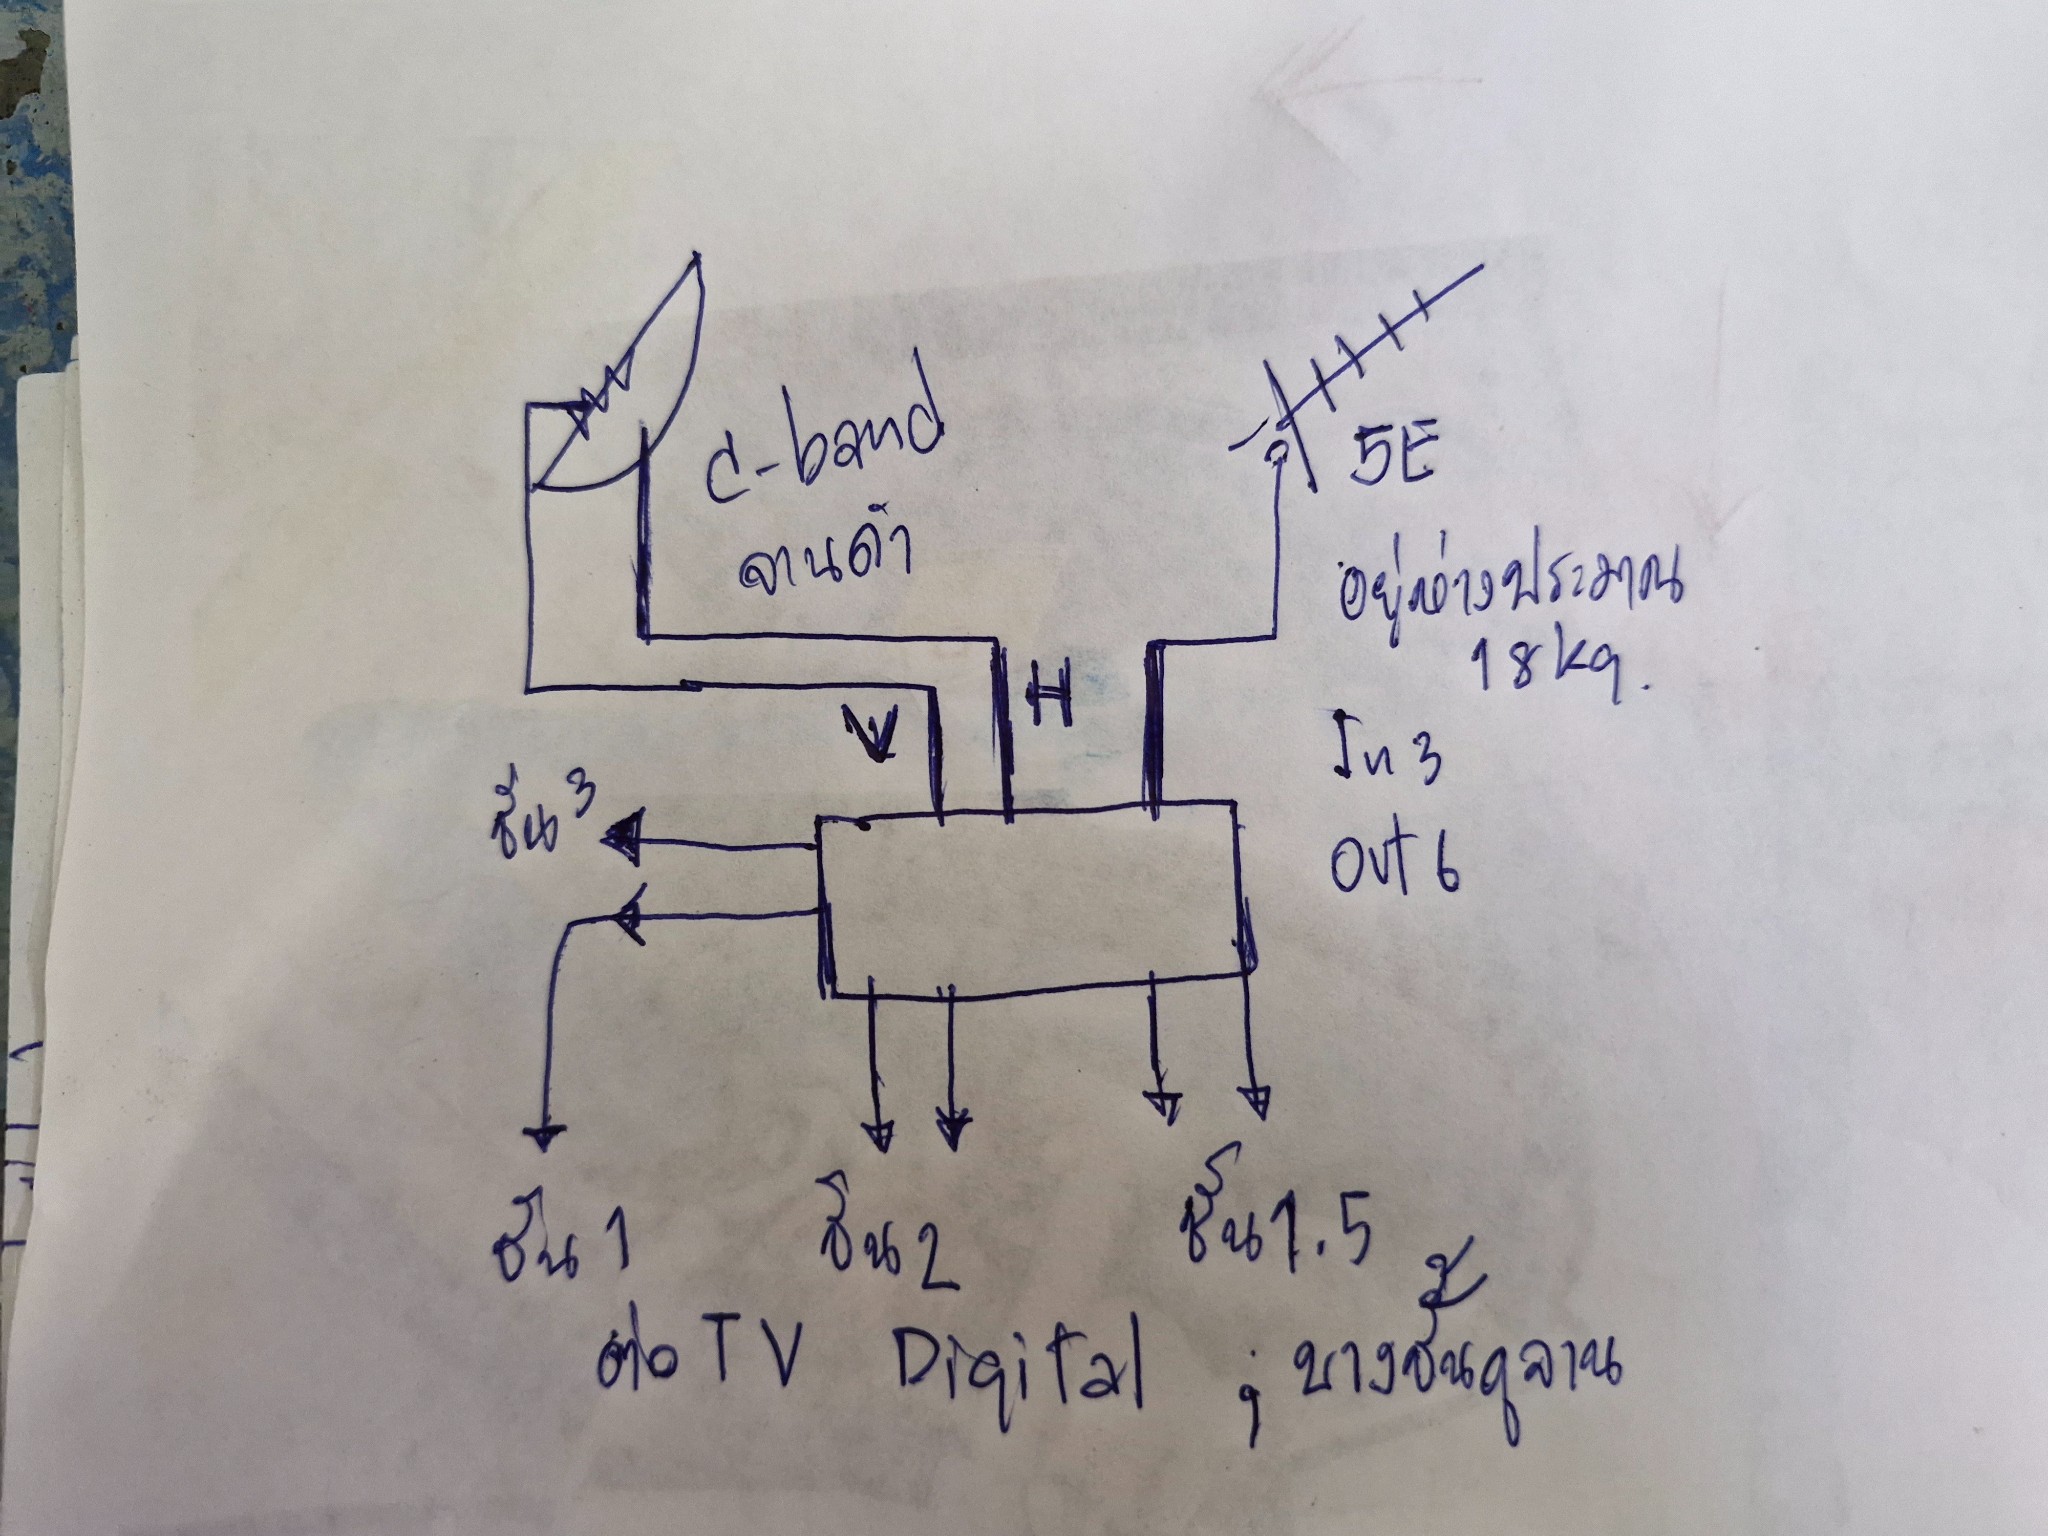 C-band
จานดำ
5E
อยู่ห่างประมาณ
18 kg.
V
H
In 3
Out 6
ชั้น 3
ชั้น 1
ชั้น 2
ชั้น 1.5
ต่อ TV Digital ; บางชั้นดูจาน